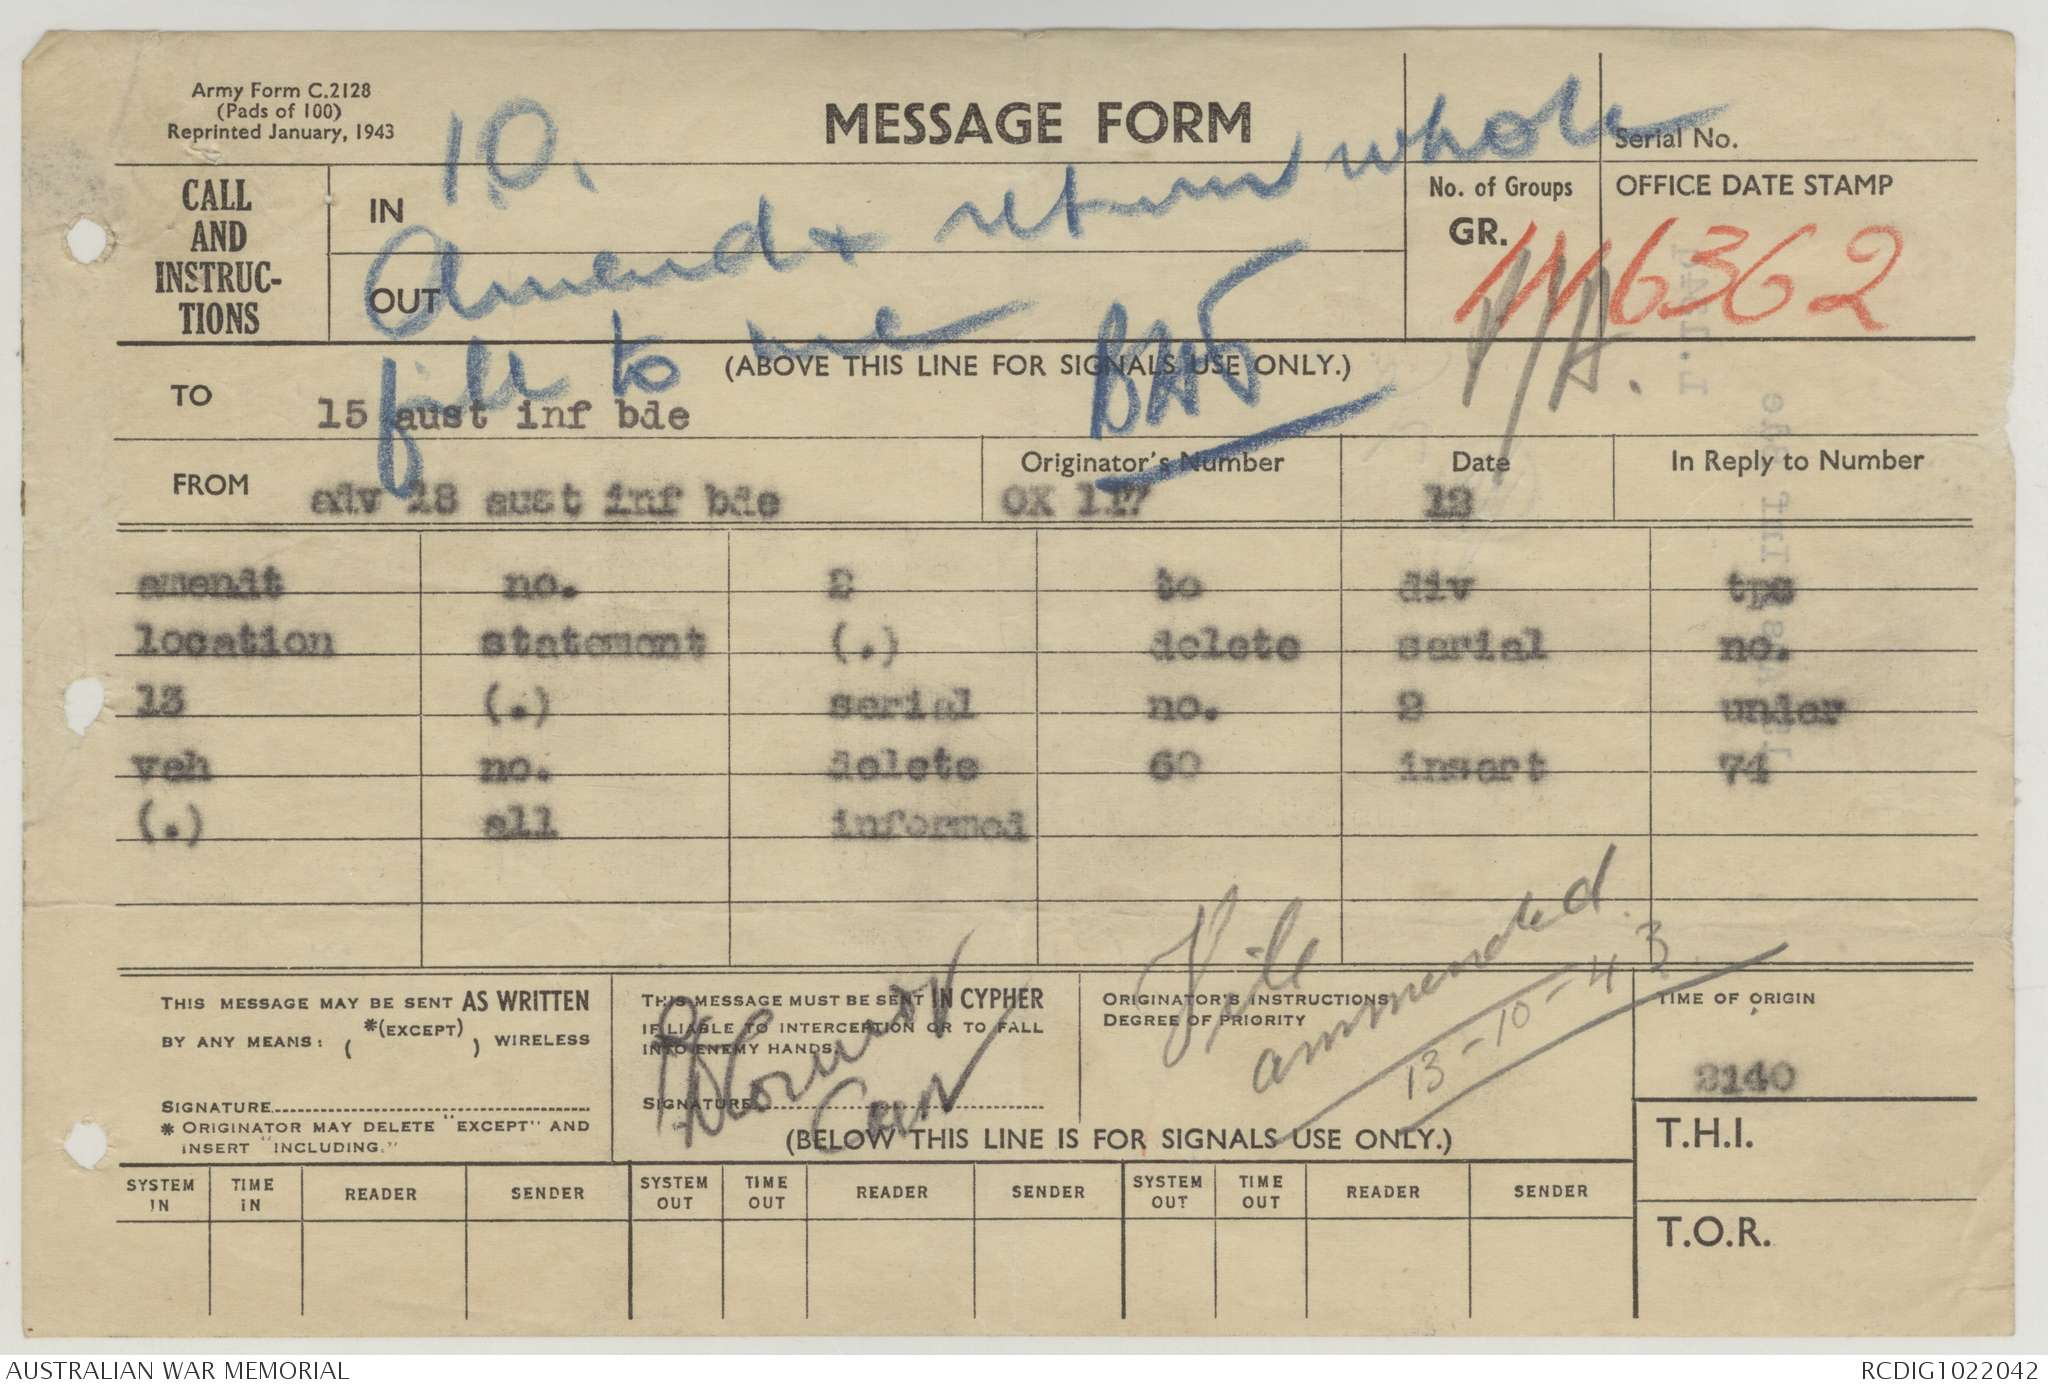 Army Form C.2128
(Pads of 100)
Reprinted January, 1943
MESSAGE FORM
Serial No.
I.O.
Amend & return whole
file to me
CALL
AND
INSTRUC-
TIONS
IN
OUT
No. of Groups
GR.
OFFICE DATE STAMP
IN6362
P/A.
(ABOVE THIS LINE FOR SIGNALS USE ONLY.)
TO
15 aust inf bde
FROM
adv 18 aust inf bde
Originator's Number
OX 117
Date
12
In Reply to Number
amendt no. 2 to div tps
location statement (.) delete serial no.
13 (.) serial no. 2 under
veh no. delete 60 insert 74
(.) all informed
File
ammended.
13-10-43
THIS MESSAGE MAY BE SENT AS WRITTEN
BY ANY MEANS: ( *(EXCEPT) ) WIRELESS
SIGNATURE
* ORIGINATOR MAY DELETE "EXCEPT" AND
INSERT "INCLUDING."
THIS MESSAGE MUST BE SENT IN CYPHER
IF LIABLE TO INTERCEPTION OR TO FALL
INTO ENEMY HANDS.
SIGNATURE
Capt
ORIGINATOR'S INSTRUCTIONS
DEGREE OF PRIORITY
TIME OF ORIGIN
2140
(BELOW THIS LINE IS FOR SIGNALS USE ONLY.)
T.H.I.
T.O.R.
SYSTEM IN TIME IN READER SENDER SYSTEM OUT TIME OUT READER SENDER SYSTEM OUT TIME OUT READER SENDER
AUSTRALIAN WAR MEMORIAL
RCDIG1022042